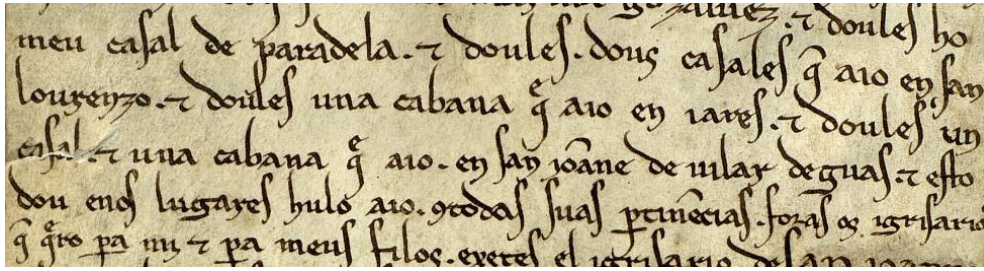 meu casal de paradela. ⁊ doules. dous casales q̄ aio en san
lourenzo. ⁊ doules una cabana q̄ aio en iares. ⁊ doules un
casal. ⁊ una cabana q̄ aio. en san ioāne de uilar deguas. ⁊ esto
dou enos lugares hulo aio. ꝯtodas suas ꝑtinēcias. foras os igrisarios
q̄ q̄ro pa mi ⁊ pa meus filos. exetes el igrisario